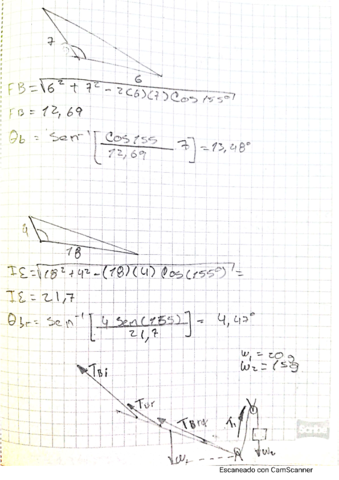 7
6
FB = √6² + 7² - 2(6)(7) Cos 155°
FB = 12,69
θb = sen⁻¹ [Cos155/12,69 7] = 13,48°
4
18
IE = √18² + 4² - (18)(4) Cos(155°) =
IE = 21,7
θbr = sen⁻¹ [4 sen(155)/21,7] = 4,43°
W₁ = 20 g
W₂ = 15 g
TBi
Scribe
Escaneado con CamScanner